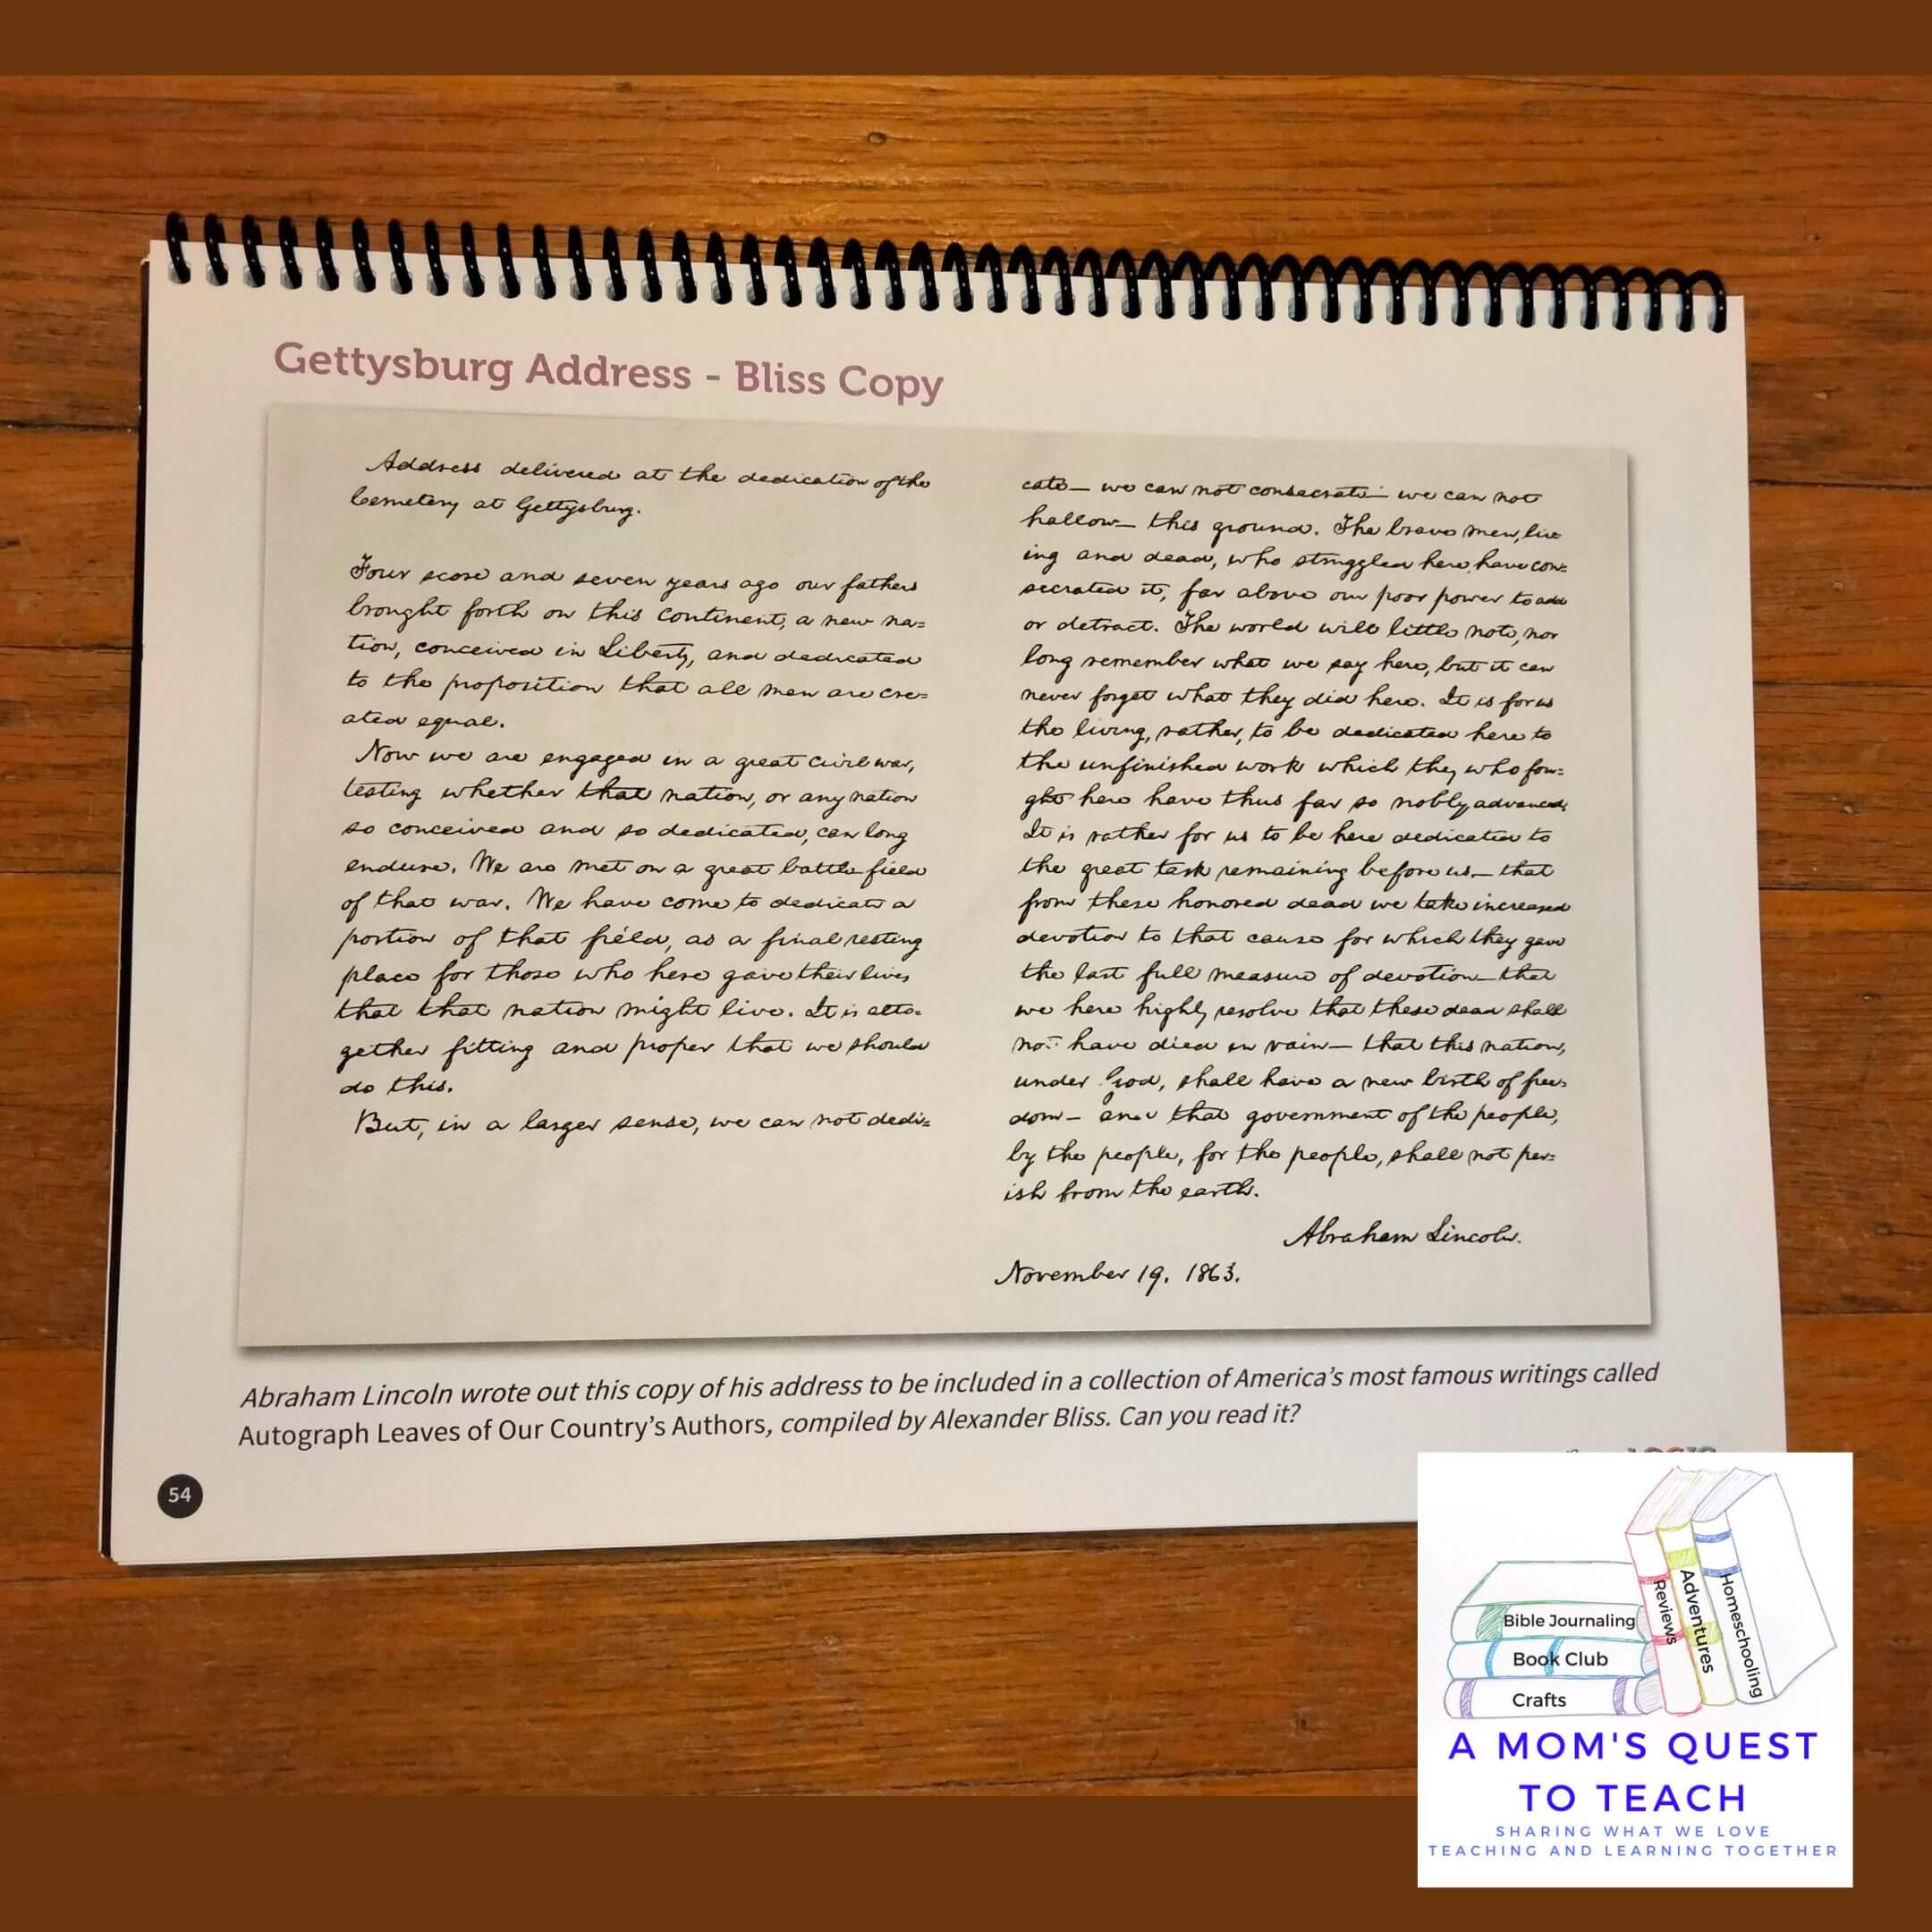 Gettysburg Address - Bliss Copy
Address delivered at the dedication of the
Cemetery at Gettysburg.
Four score and seven years ago our fathers
brought forth on this continent, a new na=
tion, conceived in Liberty, and dedicated
to the proposition that all men are cre=
ated equal.
Now we are engaged in a great civil war,
testing whether that nation, or any nation
so conceived and so dedicated, can long
endure. We are met on a great battle-field
of that war. We have come to dedicate a
portion of that field, as a final resting
place for those who here gave their lives
that that nation might live. It is alto=
gether fitting and proper that we should
do this.
But, in a larger sense, we can not dedi=
cate— we can not consecrate— we can not
hallow— this ground. The brave men, liv=
ing and dead, who struggled here, have con=
secrated it, far above our poor power to add
or detract. The world will little note, nor
long remember what we say here, but it can
never forget what they did here. It is for us
the living, rather, to be dedicated here to
the unfinished work which they who fou=
ght here have thus far so nobly advanced.
It is rather for us to be here dedicated to
the great task remaining before us— that
from these honored dead we take increased
devotion to that cause for which they gave
the last full measure of devotion— that
we here highly resolve that these dead shall
not have died in vain— that this nation,
under God, shall have a new birth of free=
dom— and that government of the people,
by the people, for the people, shall not per=
ish from the earth.
Abraham Lincoln.
November 19. 1863.
Abraham Lincoln wrote out this copy of his address to be included in a collection of America's most famous writings called
Autograph Leaves of Our Country's Authors, compiled by Alexander Bliss. Can you read it?
54
Bible Journaling
Book Club
Crafts
Reviews
Adventures
Homeschooling
A MOM'S QUEST
TO TEACH
SHARING WHAT WE LOVE
TEACHING AND LEARNING TOGETHER